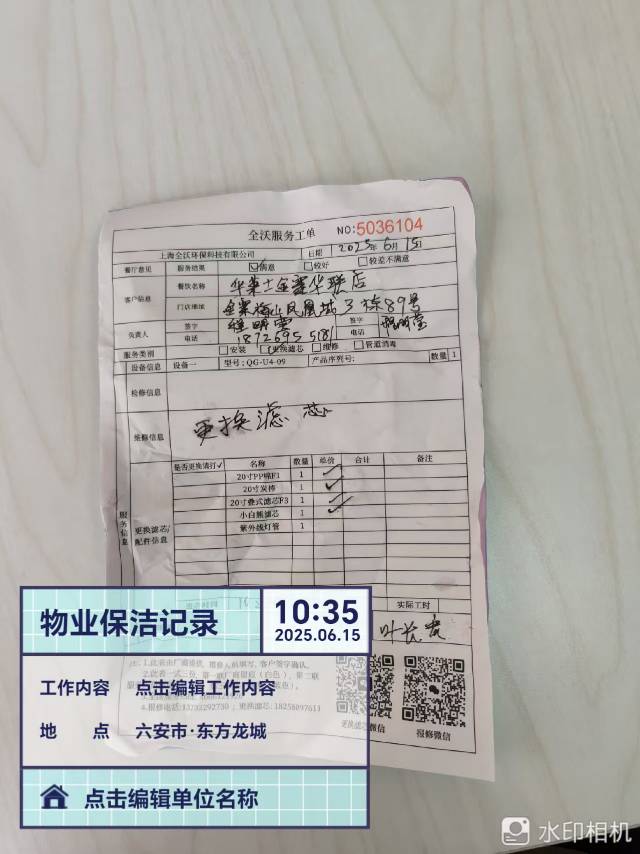 全沃服务工单
NO:5036104
上海全沃环保科技有限公司 日期 2025年6月15日
餐厅意见 服务结果 满意 较好 较差不满意
客户信息 餐饮名称 华莱士金寨华联店
门店地址 金寨梅山凤凰城3栋89号
负责人 签字 签字
电话 18726955181 电话
服务类别 安装 更换滤芯 维修 管道消毒
设备信息 设备一 型号:QG-U4-09 产品序列号: 数量 1
检修信息
维修信息 更换滤芯
服务信息
更换滤芯/配件信息
是否更换请打✓ 名称 数量 单价 合计 备注
20寸PP棉F1 1 ✓
20寸炭棒 1 ✓
20寸叠式滤芯F3 1 ✓
小白熊滤芯 1 ✓
紫外线灯管 1
实际工时
更换滤芯微信 报修微信
物业保洁记录
10:35
2025.06.15
工作内容 点击编辑工作内容
地 点 六安市·东方龙城
点击编辑单位名称
水印相机